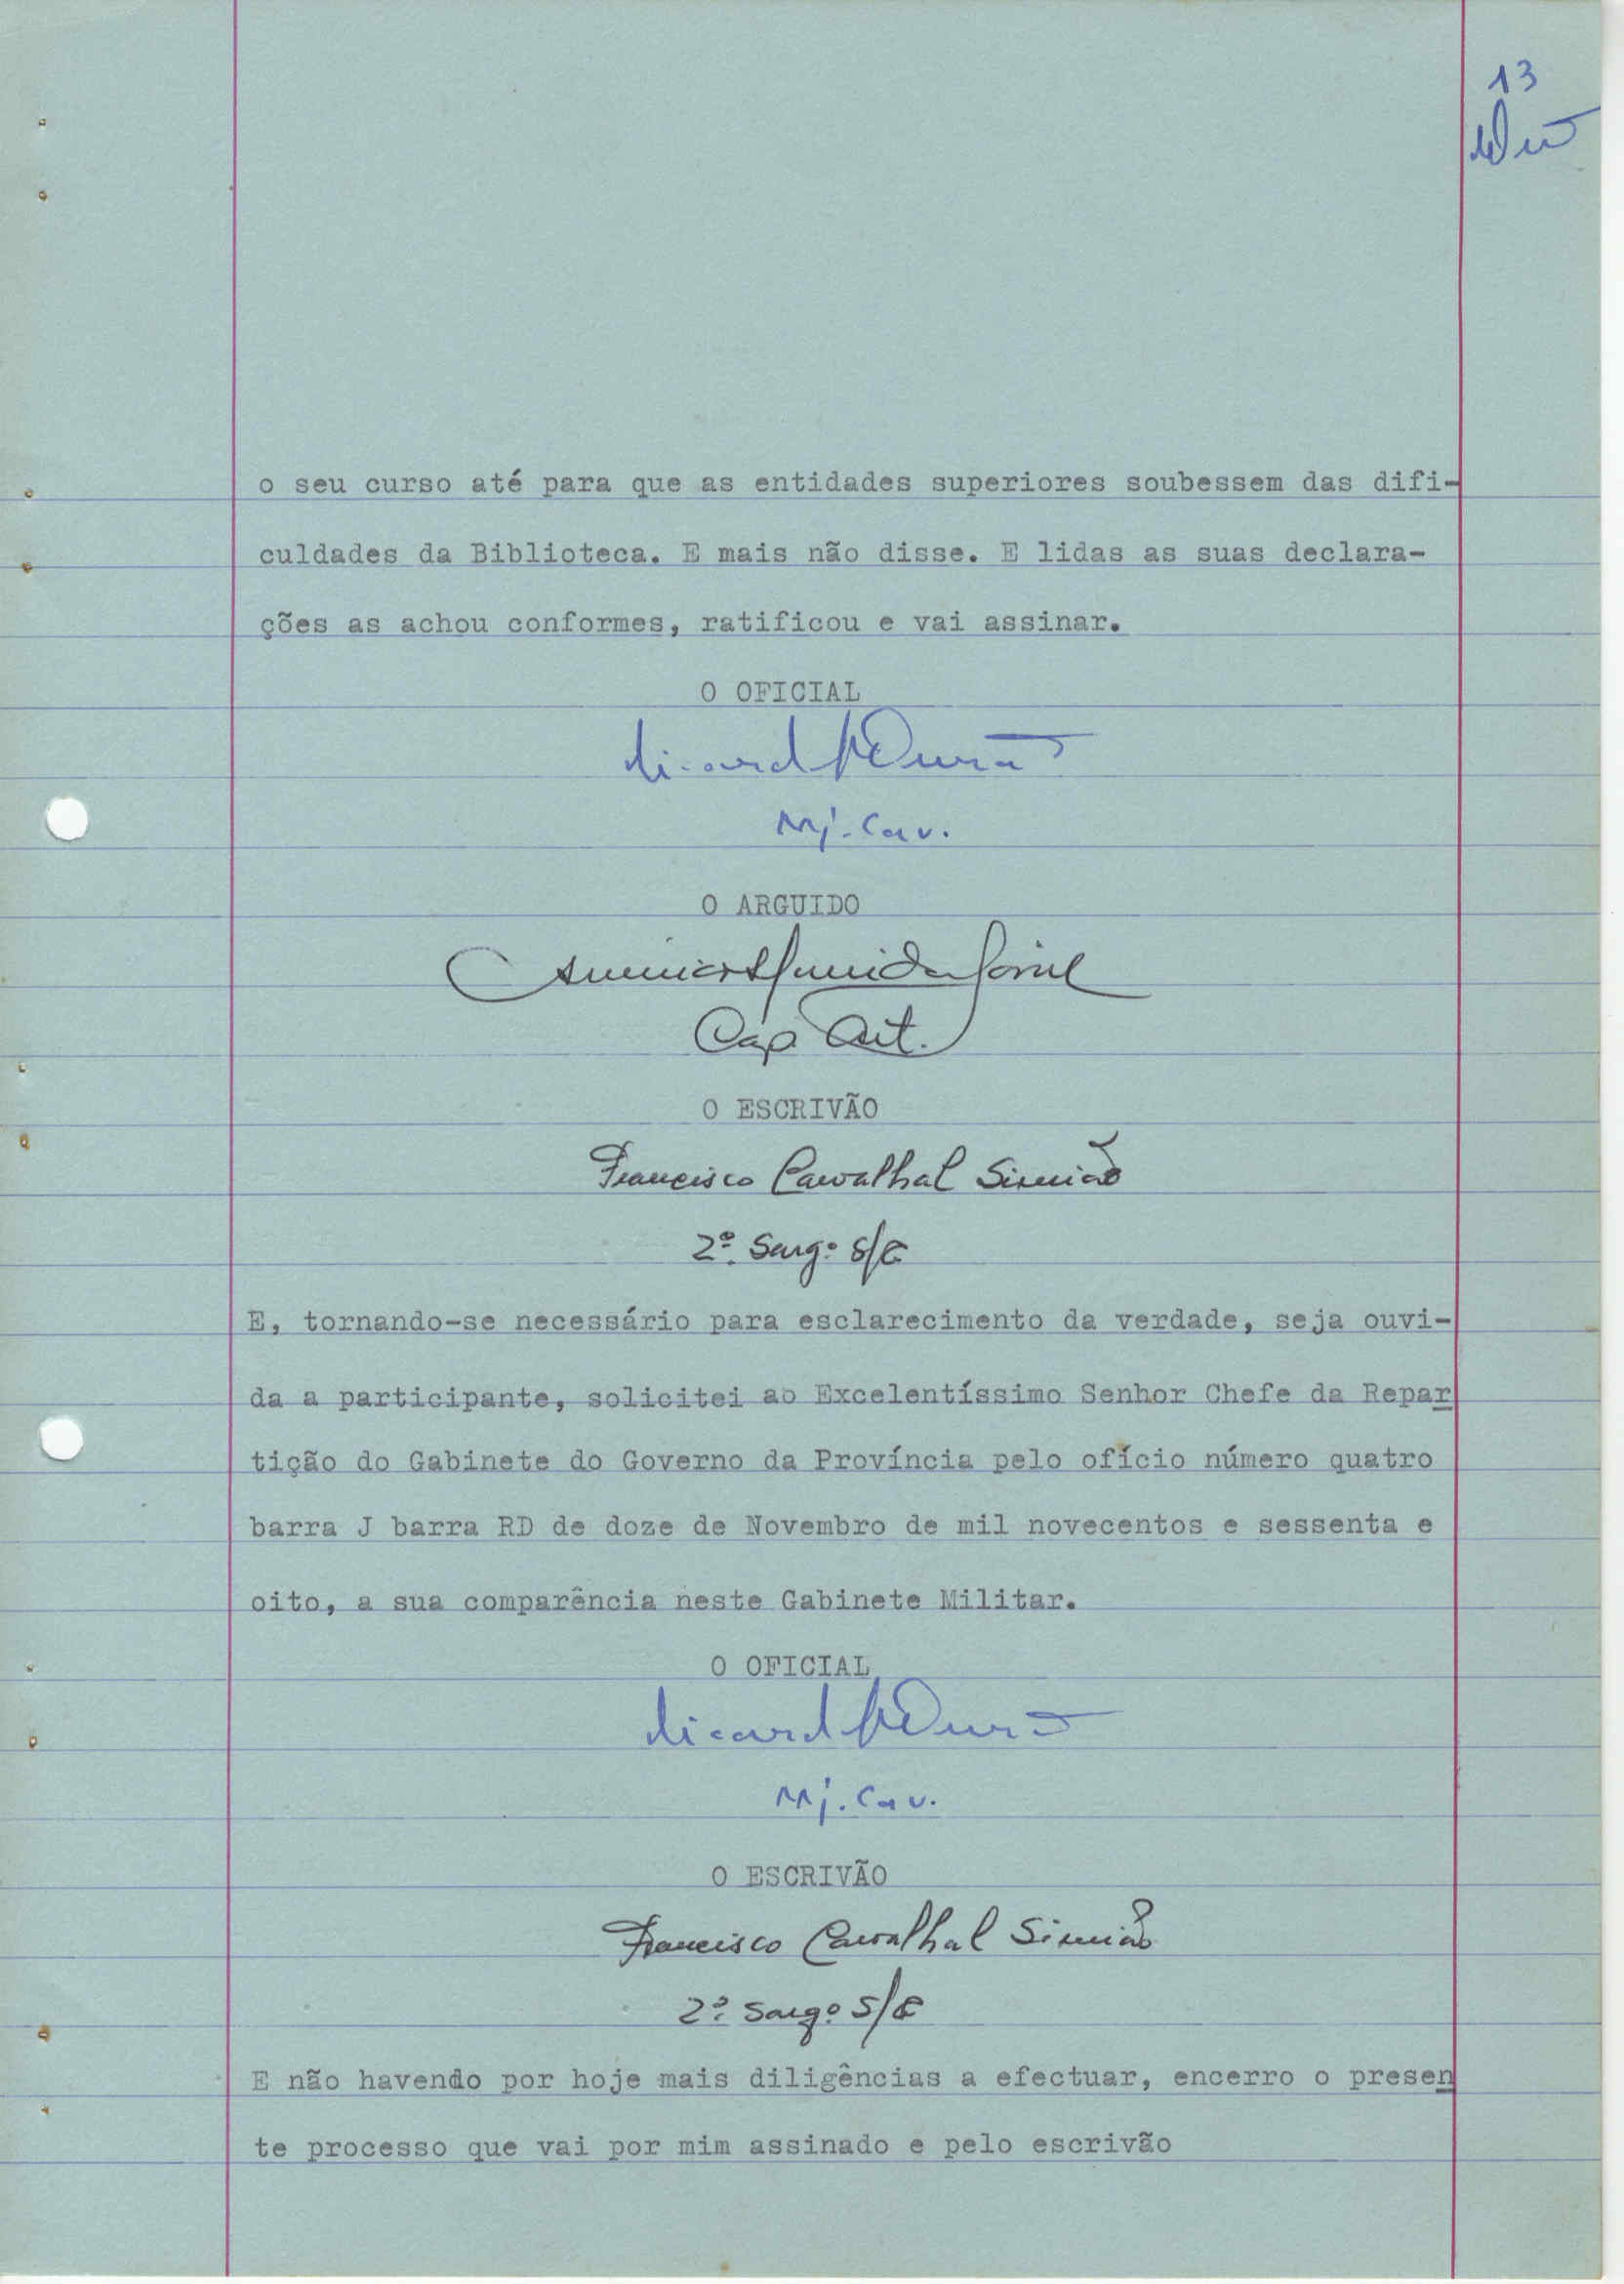 13
o seu curso até para que as entidades superiores soubessem das difi-
culdades da Biblioteca. E mais não disse. E lidas as suas declara-
ções as achou conformes, ratificou e vai assinar.
O OFICIAL
Mj. Cav.
O ARGUIDO
Cap. Art.
O ESCRIVÃO
Francisco Carvalhal Simião
2º. Sarg.º S/E
E, tornando-se necessário para esclarecimento da verdade, seja ouvi-
da a participante, solicitei ao Excelentíssimo Senhor Chefe da Repar
tição do Gabinete do Governo da Província pelo ofício número quatro
barra J barra RD de doze de Novembro de mil novecentos e sessenta e
oito, a sua comparência neste Gabinete Militar.
O OFICIAL
Mj. Cav.
O ESCRIVÃO
Francisco Carvalhal Simião
2º. Sargº S/E
E não havendo por hoje mais diligências a efectuar, encerro o presen
te processo que vai por mim assinado e pelo escrivão